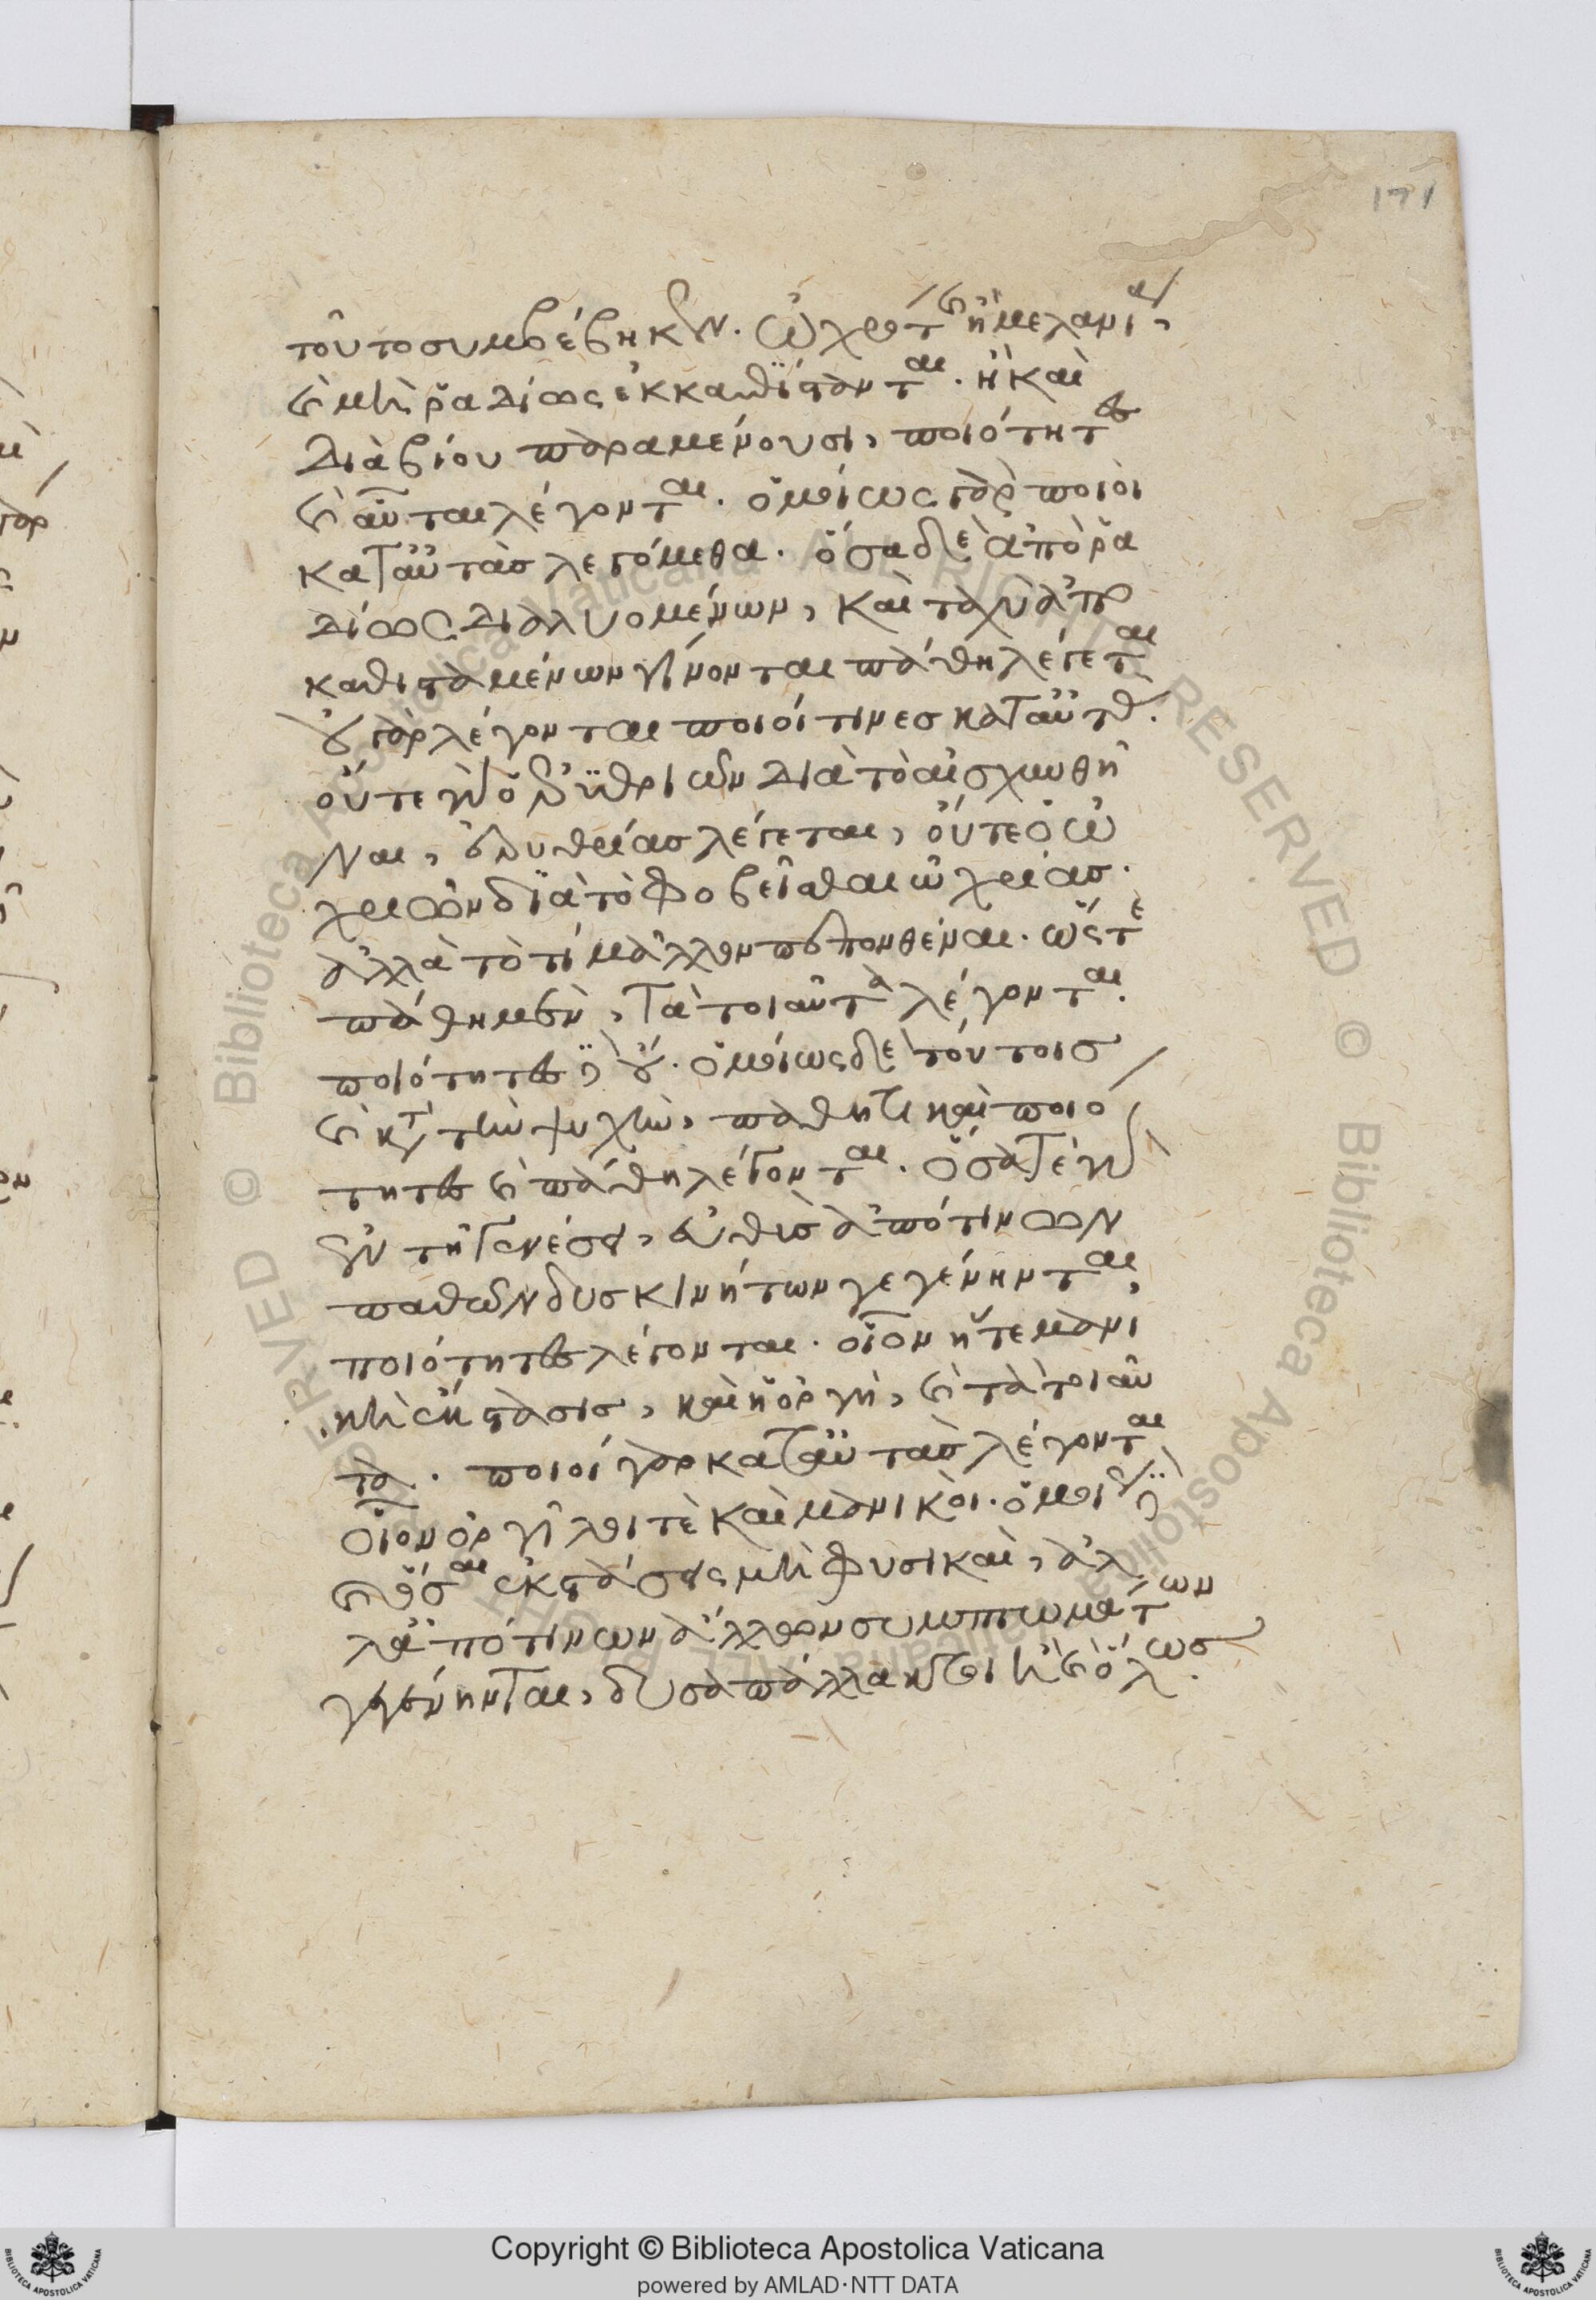 171
τοῦτο συμβέβηκεν. ὠχρότης ἢ μελανία,
καὶ μὴ ῥαδίως ἐκκαθίστανται. ἢ καὶ
διὰ βίου παραμένουσι, ποιότητες
καὶ αὗται λέγονται. ὁμοίως γὰρ ποιοὶ
κατ αὐτὰς λεγόμεθα. ὅσα δὲ ἀπὸ ῥα
δίως διαλυομένων, καὶ ταχὺ ἀπο
καθισταμένων γίνονται πάθη λέγεται
οὐ γὰρ λέγονται ποιοί τινες κατ αὐτά.
οὔτε γὰρ ὁ ἐρυθριῶν διὰ τὸ αἰσχυνθῆ
ναι, ἐρυθρίας λέγεται, οὔτε ὁ ὠ
χριῶν διὰ τὸ φοβεῖσθαι ὠχρίας.
ἀλλὰ τὸ τί μᾶλλον πεπονθέναι. ὥστε
πάθη μὲν, τὰ τοιαῦτα λέγονται.
ποιότητες δὲ οὔ. ὁμοίως δὲ τούτοις
καὶ κατὰ τὴν ψυχὴν, παθητικαὶ ποιό
τητες καὶ πάθη λέγονται. ὅσα τε γὰρ
ἐν τῇ γενέσει, εὐθὺς ἀπό τινων
παθῶν δυσκινήτων γεγένηνται,
ποιότητες λέγονται. οἷον ἥ τε μανι
κὴ ἔκστασις, καὶ ἡ ὀργὴ, καὶ τὰ τοιαῦ
τα. ποιοί γὰρ κατ αὐτὰς λέγονται
οἷον ὀργίλοι τὲ καὶ μανικοὶ. ὁμοίως δὲ
καὶ ὅσαι ἐκστάσεις μὴ φυσικαὶ, ἀλ
λ ἀπό τινων ἄλλων συμπτωμάτων
γεγένηνται, δυσαπάλλακτοι ἢ καὶ ὅλως
Copyright © Biblioteca Apostolica Vaticana
powered by AMLAD·NTT DATA